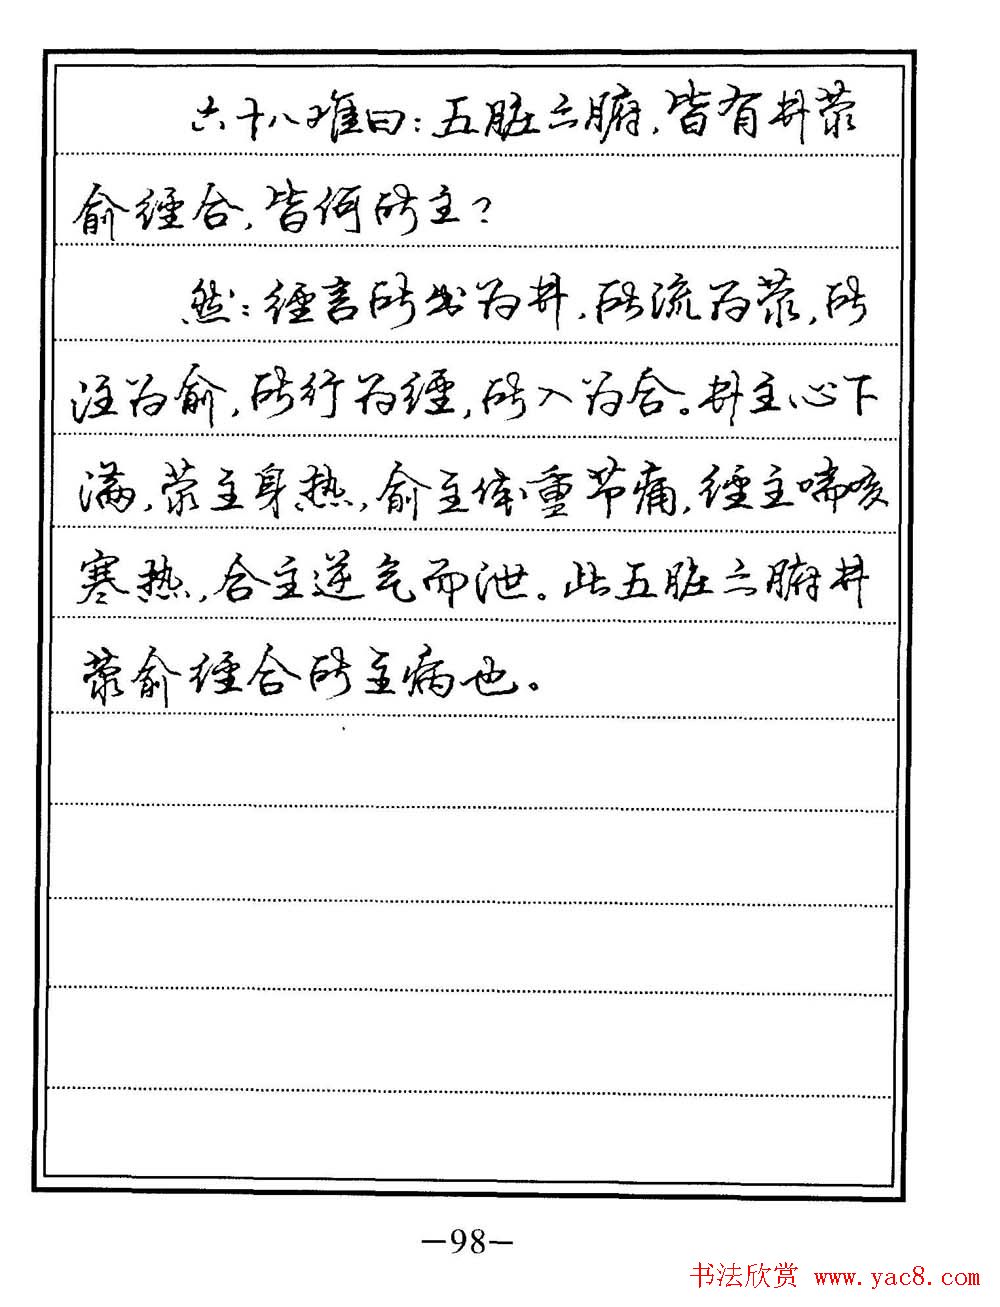 六十八难曰：五脏六腑，皆有井荥
俞经合，皆何所主？
然：经言所出为井，所流为荥，所
注为俞，所行为经，所入为合。井主心下
满，荥主身热，俞主体重节痛，经主喘咳
寒热，合主逆气而泄。此五脏六腑井
荥俞经合所主病也。
—98—
书法欣赏 www.yac8.com